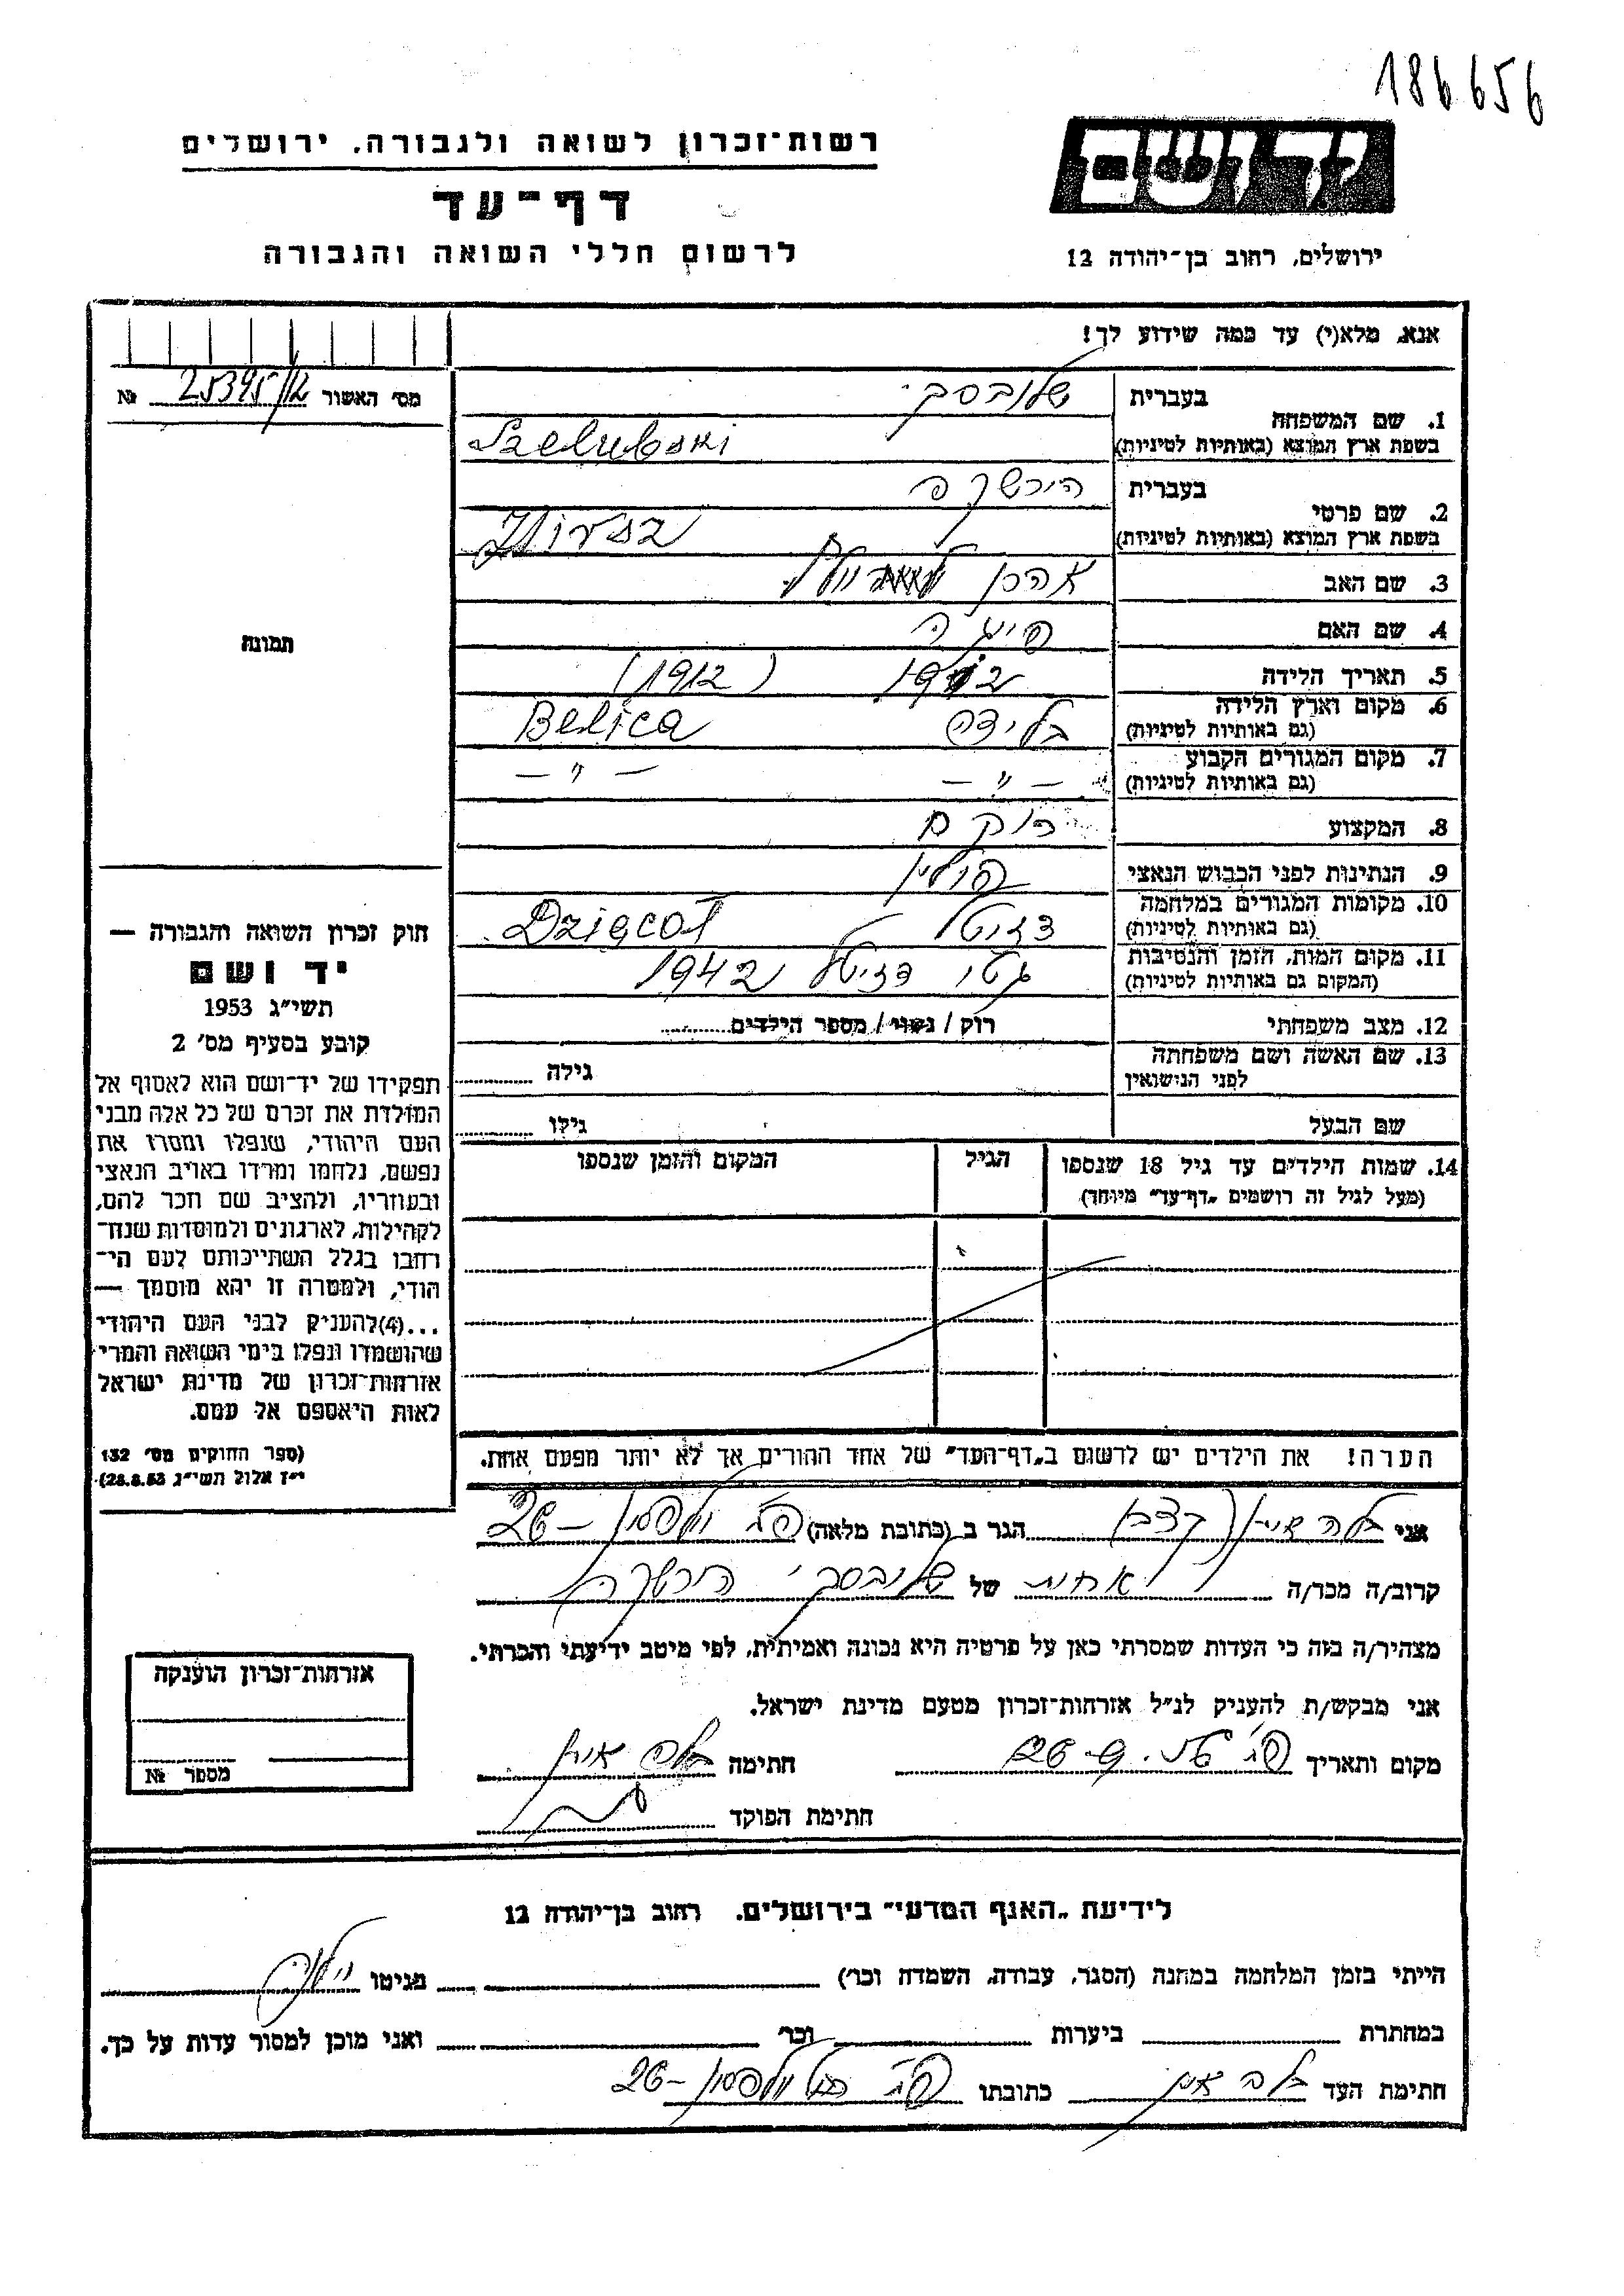 186656
יד ושם
רשות־זכרון לשואה ולגבורה, ירושלים
דף־עד
לרשום חללי השואה והגבורה
ירושלים, רחוב בן־יהודה 12
אנא, מלא(י) עד כמה שידוע לך!
מס׳ האשור 25395/12 №
1. שם המשפחה
בעברית שלובסקי
בשפת ארץ המוצא (באותיות לטיניות) Szelubski
2. שם פרטי
בעברית הירשקה
בשפת ארץ המוצא (באותיות לטיניות) Hirsz
3. שם האב אהרן
4. שם האם
5. תאריך הלידה (1912)
6. מקום וארץ הלידה
(גם באותיות לטיניות) בליצה Belica
7. מקום המגורים הקבוע
(גם באותיות לטיניות) — " — — " —
8. המקצוע רוקח
9. הנתינות לפני הכבוש הנאצי פולין
10. מקומות המגורים במלחמה
(גם באותיות לטיניות)
11. מקום המות, הזמן והנסיבות
(המקום גם באותיות לטיניות) גטו 1942
12. מצב משפחתי רוק / נשוי / מספר הילדים
13. שם האשה ושם משפחתה
לפני הנישואין גילה
שם הבעל גילו
14. שמות הילדים עד גיל 18 שנספו
(מעל לגיל זה רושמים „דף־עד״ מיוחד)
הגיל
המקום והזמן שנספו
הערה! את הילדים יש לרשום ב„דף־העד״ של אחד ההורים אך לא יותר מפעם אחת.
תמונה
חוק זכרון השואה והגבורה —
יד ושם
תשי״ג 1953
קובע בסעיף מס׳ 2
תפקידו של יד־ושם הוא לאסוף אל
המולדת את זכרם של כל אלה מבני
העם היהודי, שנפלו ומסרו את
נפשם, נלחמו ומרדו באויב הנאצי
ובעוזריו, ולהציב שם וזכר להם,
לקהילות, לארגונים ולמוסדות שנח־
רחבו בגלל השתייכותם לעם הי־
הודי, ולמטרה זו יהא מוסמך —
...(4)להעניק לבני העם היהודי
שהושמדו ונפלו בימי השואה והמרי
אזרחות־זכרון של מדינת ישראל
לאות היאספם אל עמם.
(ספר החוקים מס׳ 132
י״ז אלול תשי״ג 28.8.53)
אני הגר ב (כתובת מלאה) וולפסון 26
קרוב/ה מכר/ה אחות של שלובסקי הירשקה
מצהיר/ה בזה כי העדות שמסרתי כאן על פרטיה היא נכונה ואמיתית, לפי מיטב ידיעתי והכרתי.
אני מבקש/ת להעניק לנ״ל אזרחות־זכרון מטעם מדינת ישראל.
מקום ותאריך חתימה
חתימת הפוקד
אזרחות־זכרון הוענקה
מספר №
לידיעת „האגף המדעי״ בירושלים. רחוב בן־יהודה 12
הייתי בזמן המלחמה במחנה (הסגר, עבודה, השמדה וכו׳) בגיטו וילנה
במחתרת ביערות וכו׳ ואני מוכן למסור עדות על כך.
חתימת העד כתובתו וולפסון 26